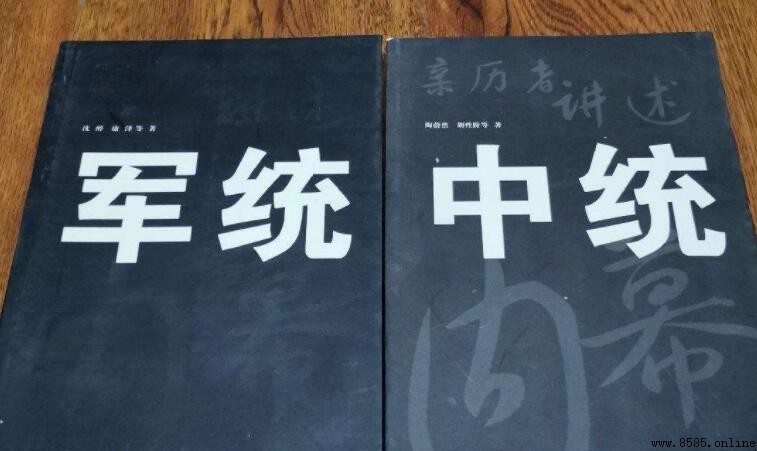 沈醉 康泽等著
军统
亲历者
讲述
陶蔚然 等著
中统
内幕
www.8585.online